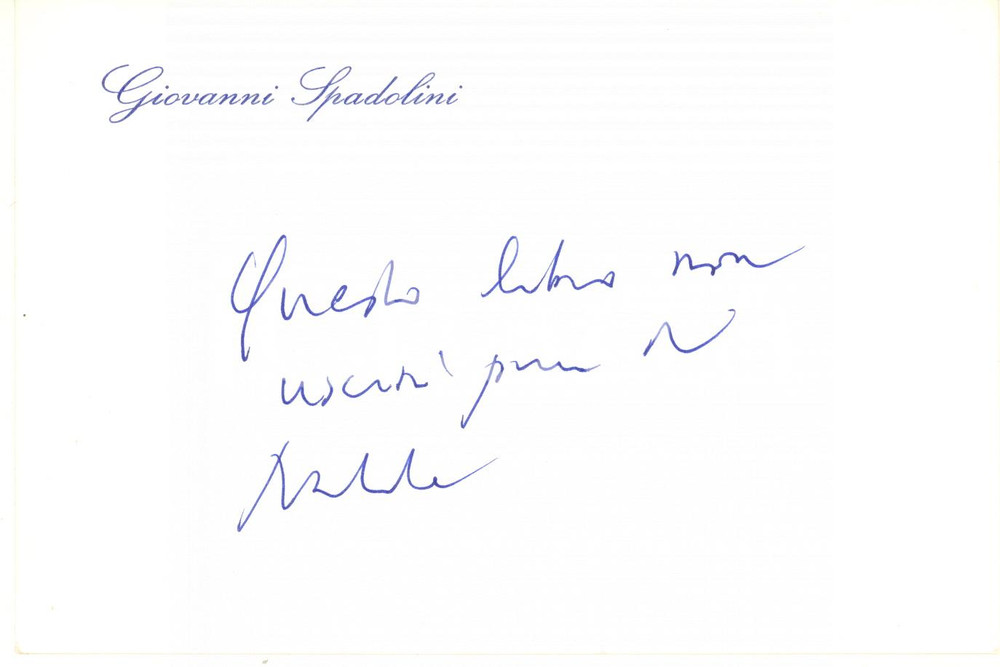 Giovanni Spadolini
Questo libro non
uscirà prima di
Natale